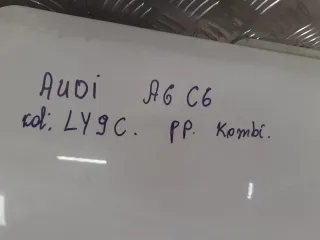 AUDI A6 C6
kol: LY9C. PP. Kombi.